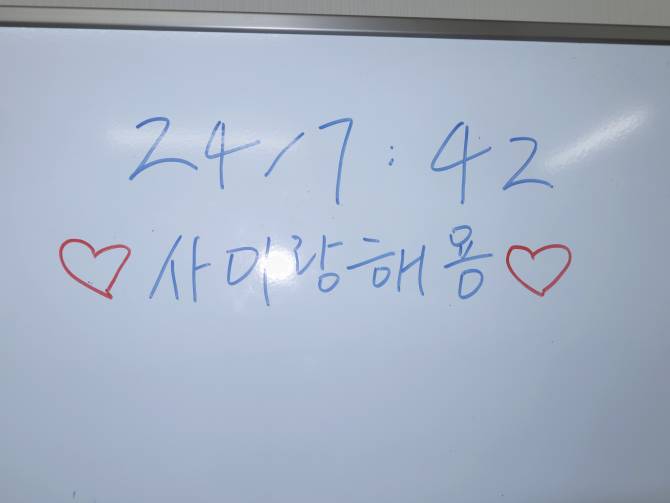 24/7:42
♡사이랑해용♡